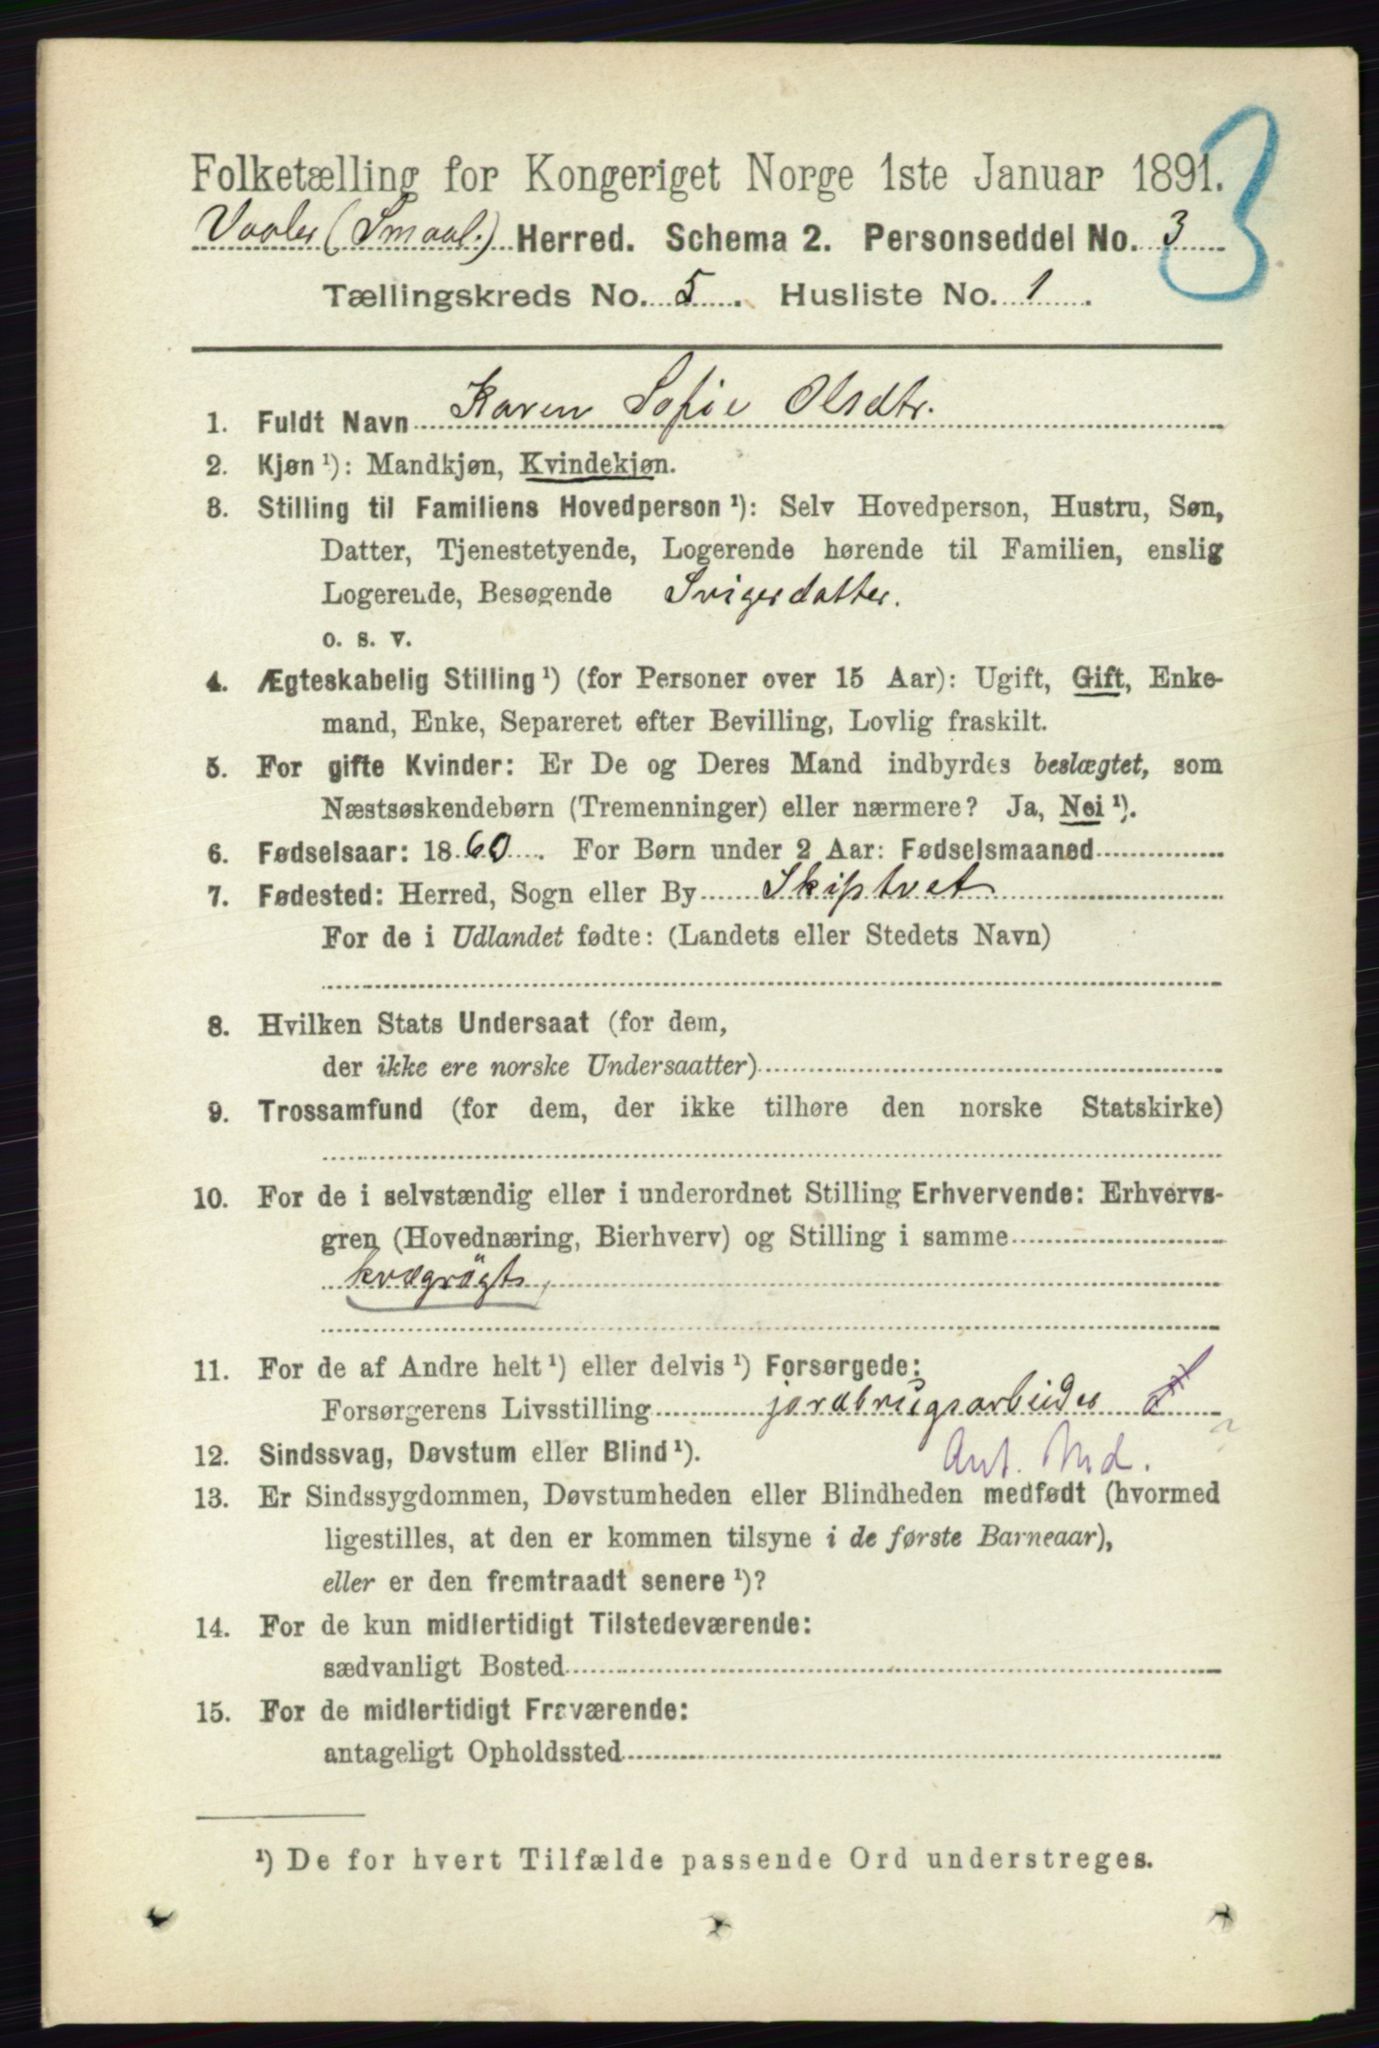 Folketælling for Kongeriget Norge 1ste Januar 1891.
3
Vaaler (Smaal.) Herred. Schema 2. Personseddel No. 3
Tællingskreds No. 5. Husliste No. 1.
1. Fuldt Navn Karen Sofie Olsdtr.
2. Kjøn ¹): Mandkjøn, Kvindekjøn.
3. Stilling til Familiens Hovedperson ¹): Selv Hovedperson, Hustru, Søn,
Datter, Tjenestetyende, Logerende hørende til Familien, enslig
Logerende, Besøgende Svigerdatter.
o. s. v.
4. Ægteskabelig Stilling ¹) (for Personer over 15 Aar): Ugift, Gift, Enke-
mand, Enke, Separeret efter Bevilling, Lovlig fraskilt.
5. For gifte Kvinder: Er De og Deres Mand indbyrdes beslægtet, som
Næstsøskendebørn (Tremenninger) eller nærmere? Ja, Nei ¹).
6. Fødselsaar: 1860. For Børn under 2 Aar: Fødselsmaaned
7. Fødested: Herred, Sogn eller By Skiptvet
For de i Udlandet fødte: (Landets eller Stedets Navn)
8. Hvilken Stats Undersaat (for dem,
der ikke ere norske Undersaatter)
9. Trossamfund (for dem, der ikke tilhøre den norske Statskirke)
10. For de i selvstændig eller i underordnet Stilling Erhvervende: Erhvervs-
gren (Hovednæring, Bierhverv) og Stilling i samme
kvægrögt,
11. For de af Andre helt ¹) eller delvis ¹) Forsørgede:
Forsørgerens Livsstilling jordbrugsarbeider
12. Sindssvag, Døvstum eller Blind ¹). Ant. Md.
13. Er Sindssygdommen, Døvstumheden eller Blindheden medfødt (hvormed
ligestilles, at den er kommen tilsyne i de første Barneaar),
eller er den fremtraadt senere ¹)?
14. For de kun midlertidigt Tilstedeværende:
sædvanligt Bosted
15. For de midlertidigt Fraværende:
antageligt Opholdssted
¹) De for hvert Tilfælde passende Ord understreges.